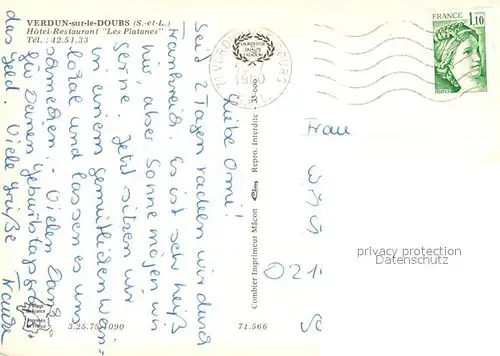 VERDUN-sur-le-DOUBS (S.-et-L.)
Hôtel-Restaurant "Les Platanes"
Tél. : 42.51.33
FRANCE
1,10
POSTES
1980
Liebe Omi!
Seit 2 Tagen radeln wir durch
Frankreich. Es ist sehr heiß
hier, aber Sonne mögen wir
gerne. Jetzt sitzen wir
in einem gemütlichen Wein-
lokal und lassen es uns
schmecken. - Vielen Dank
für Deinen Geburtstagsgruß
das Geld. Viele Grüße
Combier Imprimeur Mâcon
Repro. Interdite - 35-000
3.25.75.1090
71.566
Frau
privacy protection
watermark